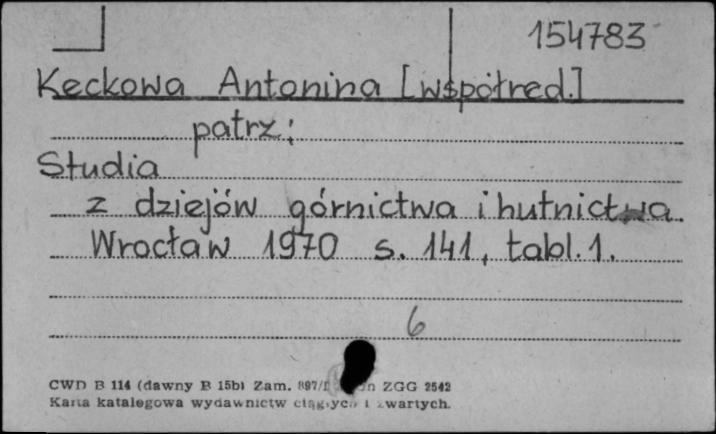 154783
Keckowa Antonina [współred.]
patrz:
Studia
z dziejów górnictwa i hutnictwa.
Wrocław 1970 s. 141, tabl. 1.
6
CWD B 114 (dawny B 15b) Zam. 897/I ZGG 2542
Karta katalogowa wydawnictw ciągłych i zwartych.